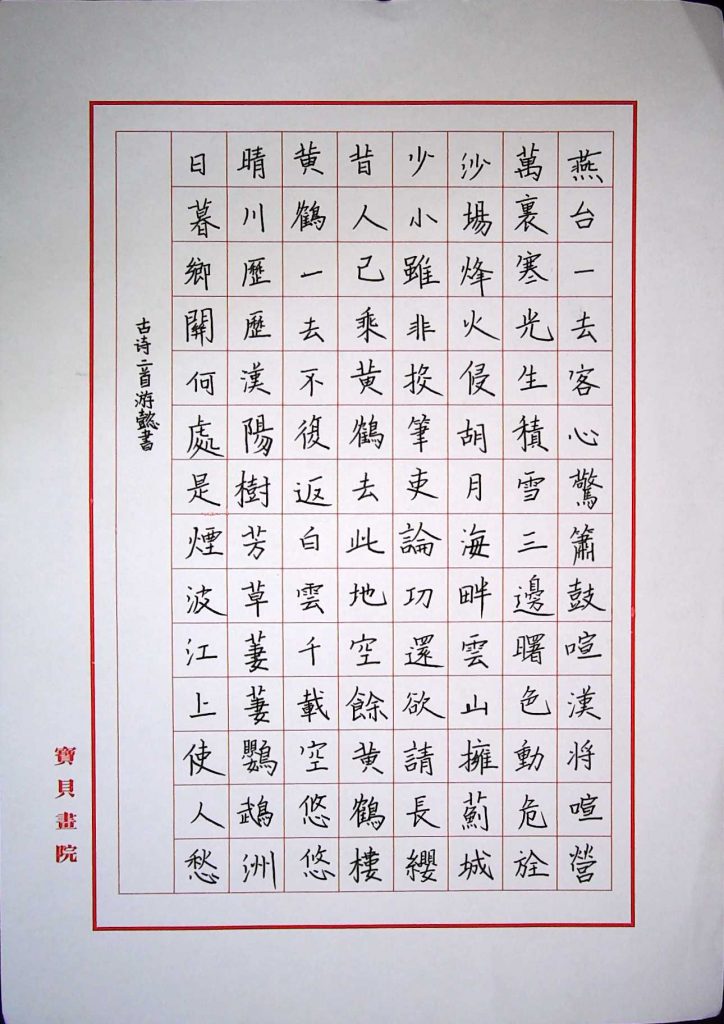 燕台一去客心驚簫鼓喧漢將喧營
萬裏寒光生積雪三邊曙色動危旌
沙場烽火侵胡月海畔雲山擁薊城
少小雖非投筆吏論功還欲請長纓
昔人已乘黃鶴去此地空餘黃鶴樓
黃鶴一去不復返白雲千載空悠悠
晴川歷歷漢陽樹芳草萋萋鸚鵡洲
日暮鄉關何處是煙波江上使人愁
古诗二首游懿書
寶貝畫院